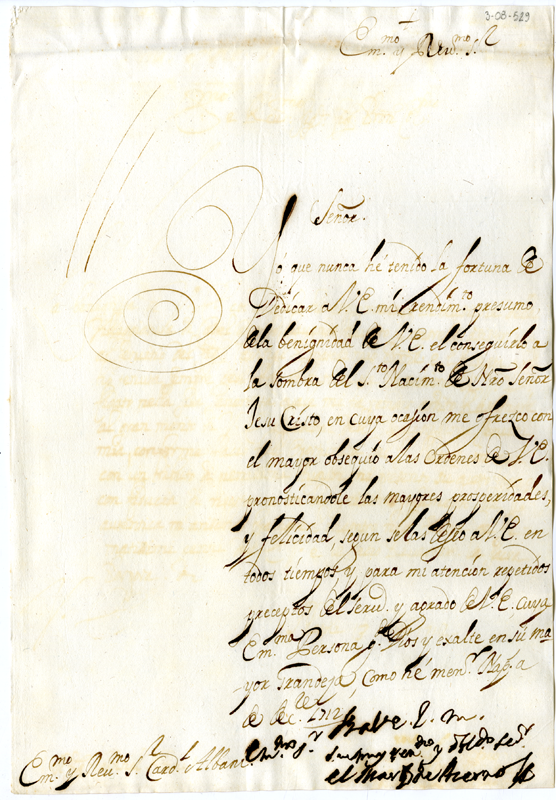 3-08-529
Em.mo y Rev.mo S.r
Señor.
Yó que nunca hé tenido la fortuna de
Dedicar a V.E. mi rendim.to presumo,
dela benignidad de V.E. el conseguirlo a
la sombra del S.to Nacim.to de Nrō Señor
Jesu Cristo, en cuya ocasion me ofrezco con
el mayor obsequio a las ordenes de V.E.
pronosticandole las mayores prosperidades,
y felicidad, segun se las desseo a V.E. en
todos tiempos, y para mi atención repetidos
preceptos del seru.o y agrado de V.E. cuya
Em.ma Persona g.e Dios y exalte en su ma
yor Grandeza, como hé men.r
de Dec.re 1712
B. L. m.
Em.mo S.r
su muy ren.do y ser.r
el Marq.s de
Em.mo y Reu.mo S.r Card.l Albani.